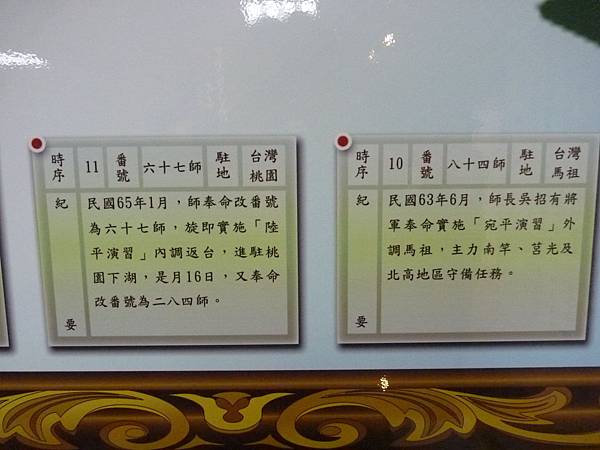 時序 11 番號 六十七師 駐地 台灣桃園
紀要
民國65年1月，師奉命改番號
為六十七師，旋即實施「陸
平演習」內調返台，進駐桃
園下湖，是月16日，又奉命
改番號為二八四師。
時序 10 番號 八十四師 駐地 台灣馬祖
紀要
民國63年6月，師長吳招有將
軍奉命實施「宛平演習」外
調馬祖，主力南竿、莒光及
北高地區守備任務。